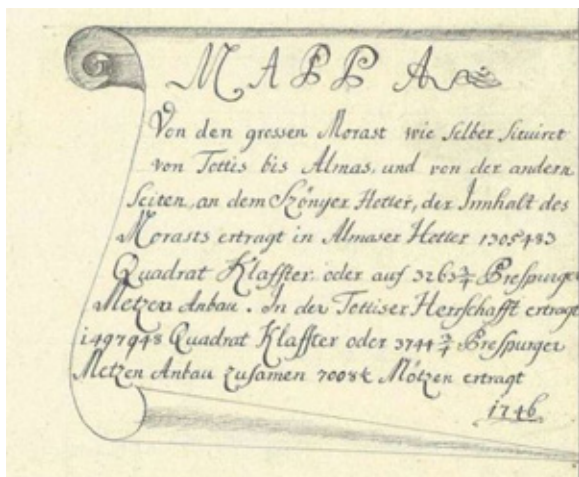 MAPPA
Von den grossen Morast wie selber situiret
von Tottis bis Almas, und von der andern
Seiten, an dem Szönyer Hotter, der Innhalt des
Morasts ertragt in Almaser Hotter 1305483
Quadrat Klaffter oder auf 3263¾ Prespurger
Metzen Anbau. In der Tottiser Herrschafft ertragt
1497948 Quadrat Klaffter oder 3744¾ Prespurger
Metzen Anbau zusamen 7008½ Mötzen ertragt
1746